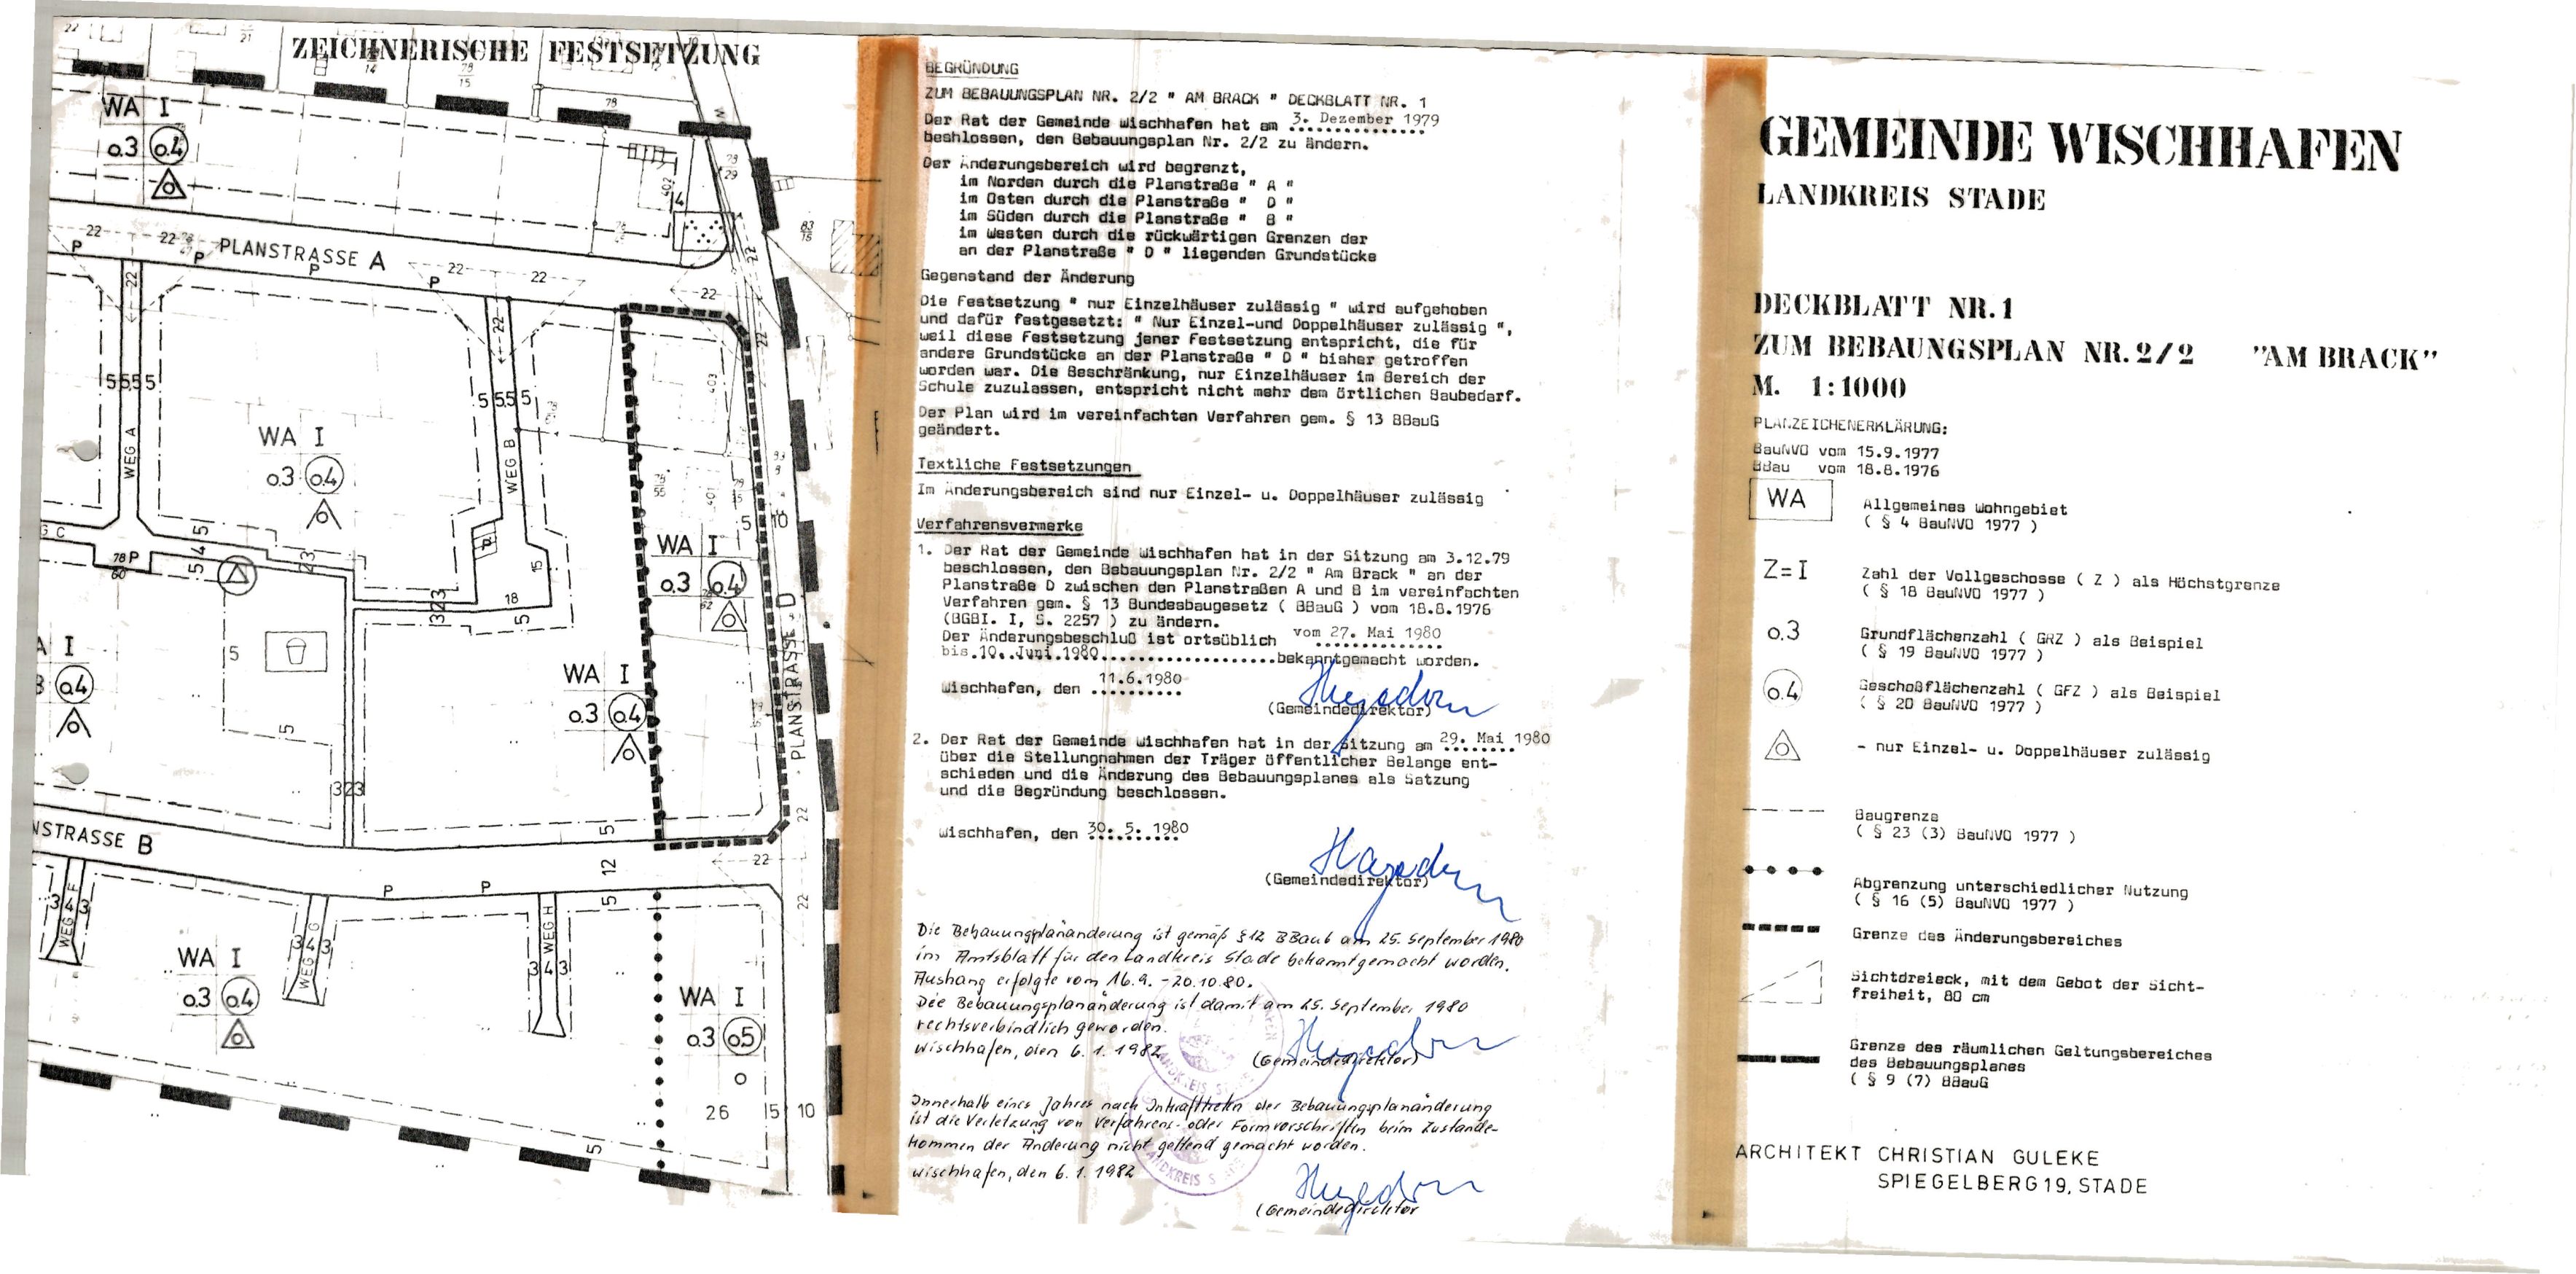 ZEICHNERISCHE FESTSETZUNG
22
22
21
14
78
15
78
WA I
0.3 0.4
78
29
4
402
83
15
22 P
22
P
PLANSTRASSE A
P
22
P
22
22
22
22
22
22
22
5 5,5 5
5 5,5 5
WEG A
WEG B
403
WA I
0.3 0.4
78
55
401
5 10
WA I
0.3 0.4
G C
78 P
60
5 4 5
2 3
P
15
18
3 2 3
5
5
5
A I
3 0.4
WA I
0.3 0.4
PLANSTRASSE D
3 2 3
5
22
NSTRASSE B
12
22
P P
5
22
3 4 3
WEG F
3 4 3
WEG G
WEG H
3 4 3
WA I
0.3 0.4
WA I
0.3 0.5
o
26 5 10
5
BEGRÜNDUNG
ZUM BEBAUUNGSPLAN NR. 2/2 " AM BRACK " DECKBLATT NR. 1
Der Rat der Gemeinde Wischhafen hat am 3. Dezember 1979
beshlossen, den Bebauungsplan Nr. 2/2 zu ändern.
Der Änderungsbereich wird begrenzt,
im Norden durch die Planstraße " A "
im Osten durch die Planstraße " D "
im Süden durch die Planstraße " B "
im Westen durch die rückwärtigen Grenzen der
an der Planstraße " D " liegenden Grundstücke
Gegenstand der Änderung
Die Festsetzung " nur Einzelhäuser zulässig " wird aufgehoben
und dafür festgesetzt: " Nur Einzel-und Doppelhäuser zulässig ",
weil diese Festsetzung jener Festsetzung entspricht, die für
andere Grundstücke an der Planstraße " D " bisher getroffen
worden war. Die Beschränkung, nur Einzelhäuser im Bereich der
Schule zuzulassen, entspricht nicht mehr dem örtlichen Baubedarf.
Der Plan wird im vereinfachten Verfahren gem. § 13 BBauG
geändert.
Textliche Festsetzungen
Im Änderungsbereich sind nur Einzel- u. Doppelhäuser zulässig
Verfahrensvermerke
1. Der Rat der Gemeinde Wischhafen hat in der Sitzung am 3.12.79
beschlossen, den Bebauungsplan Nr. 2/2 " Am Brack " an der
Planstraße D zwischen den Planstraßen A und B im vereinfachten
Verfahren gem. § 13 Bundesbaugesetz ( BBauG ) vom 18.8.1976
(BGBI. I, S. 2257 ) zu ändern.
Der Änderungsbeschluß ist ortsüblich vom 27. Mai 1980
bis 10. Juni 1980 bekanntgemacht worden.
Wischhafen, den 11.6.1980
Hagedorn
(Gemeindedirektor)
2. Der Rat der Gemeinde Wischhafen hat in der Sitzung am 29. Mai 1980
über die Stellungnahmen der Träger öffentlicher Belange ent-
schieden und die Änderung des Bebauungsplanes als Satzung
und die Begründung beschlossen.
Wischhafen, den 30. 5. 1980
Hagedorn
(Gemeindedirektor)
Die Bebauungsplanänderung ist gemäß § 12 BBauG am 25. September 1980
im Amtsblatt für den Landkreis Stade bekanntgemacht worden.
Aushang erfolgte vom 16.9. - 20.10.80.
Die Bebauungsplanänderung ist damit am 25. September 1980
rechtsverbindlich geworden.
Wischhafen, den 6. 1. 1982
Hagedorn
(Gemeindedirektor)
LANDKREIS STADE
Innerhalb eines Jahres nach Inkrafttreten der Bebauungsplanänderung
ist die Verletzung von Verfahrens- oder Formvorschriften beim Zustande-
kommen der Änderung nicht geltend gemacht worden.
Wischhafen, den 6. 1. 1982
LANDKREIS S
Hagedorn
(Gemeindedirektor
GEMEINDE WISCHHAFEN
LANDKREIS STADE
DECKBLATT NR. 1
ZUM BEBAUNGSPLAN NR. 2/2 "AM BRACK"
M. 1:1000
PLANZEICHENERKLÄRUNG:
BauNVO vom 15.9.1977
BBau vom 18.8.1976
WA Allgemeines Wohngebiet
( § 4 BauNVO 1977 )
Z=I Zahl der Vollgeschosse ( Z ) als Höchstgrenze
( § 18 BauNVO 1977 )
0.3 Grundflächenzahl ( GRZ ) als Beispiel
( § 19 BauNVO 1977 )
0.4 Geschoßflächenzahl ( GFZ ) als Beispiel
( § 20 BauNVO 1977 )
- nur Einzel- u. Doppelhäuser zulässig
Baugrenze
( § 23 (3) BauNVO 1977 )
Abgrenzung unterschiedlicher Nutzung
( § 16 (5) BauNVO 1977 )
Grenze des Änderungsbereiches
Sichtdreieck, mit dem Gebot der Sicht-
freiheit, 80 cm
Grenze des räumlichen Geltungsbereiches
des Bebauungsplanes
( § 9 (7) BBauG
ARCHITEKT CHRISTIAN GULEKE
SPIEGELBERG 19, STADE